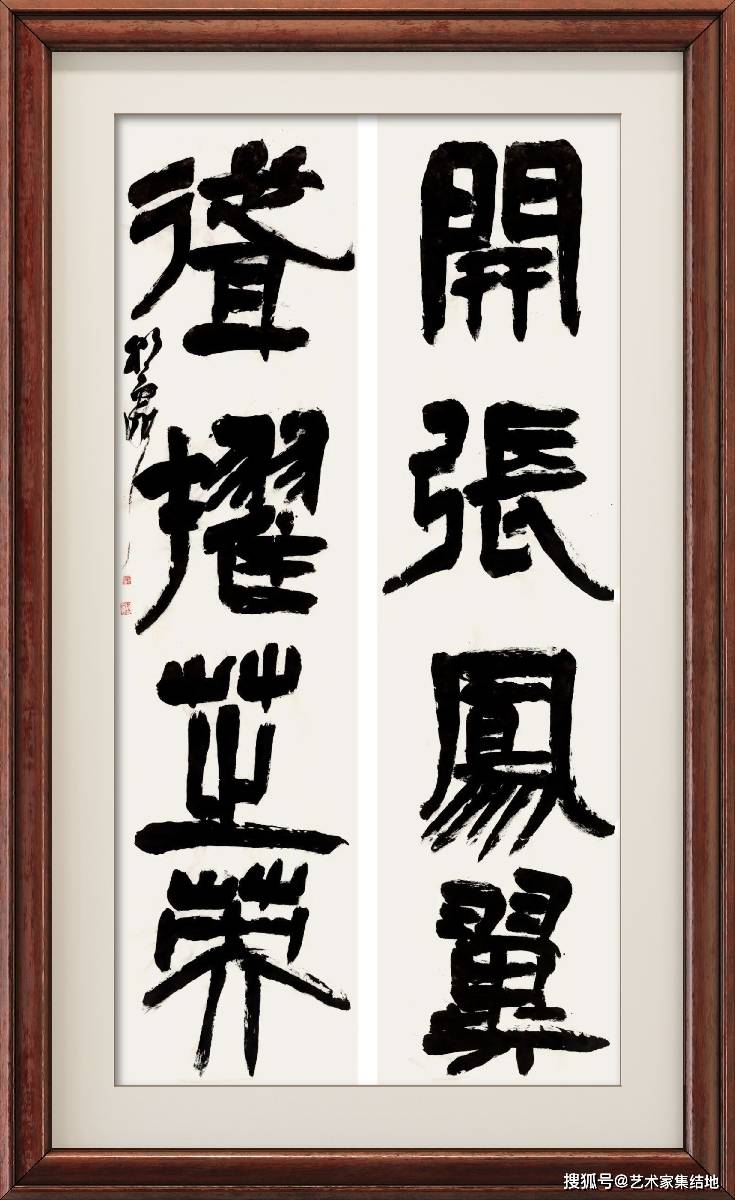 開張鳳翼
聳擢芝英
搜狐号@艺术家集结地